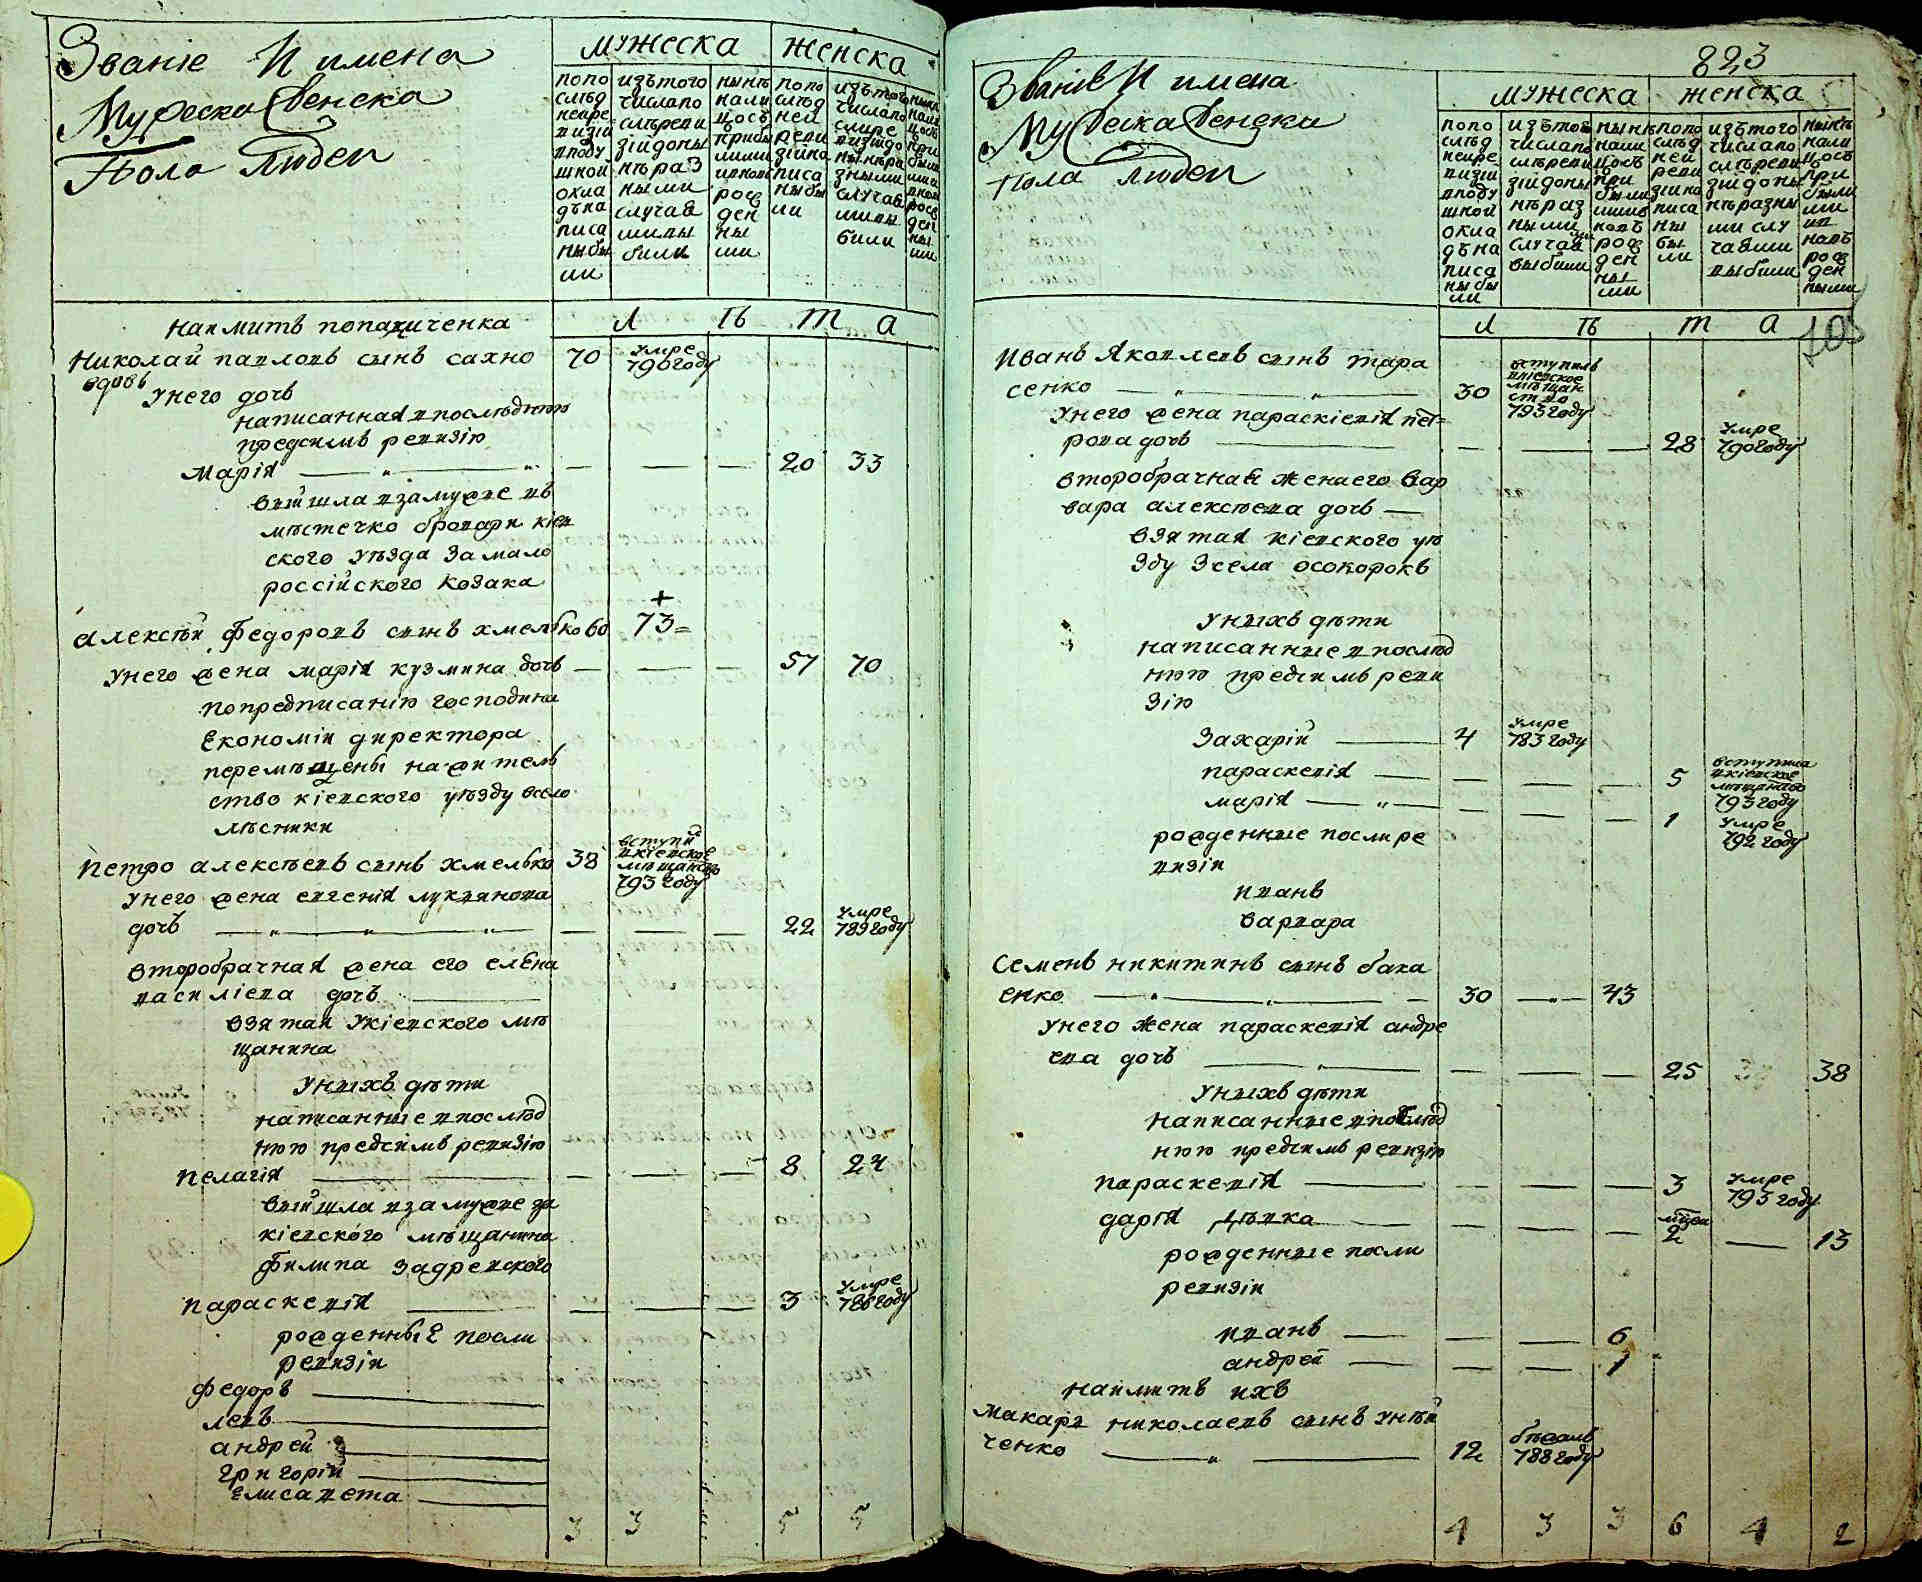 Званіе И имена
Мужеска Женска
Пола Людеи
мужеска женска
попо
слѣд
неире
визіи
вподу
шной
окла
дъна
писа
ны бы
ли
изътого
числапо
слѣреви
зіидоны
нѣ раз
ными
случая
миви
били
нынѣ
нали
цосъ
прибы
лими
ипновъ
рож
ден
ны
ми
попо
слѣд
ней
реви
зіина
писа
ны бы
ли
изътого
числапо
слире
визіидо
нынѣра
зными
случая
миви
били
Л ѣ т а
наимитъ попадиченка
Николай павловъ сынъ сахно 70 умре 790 году
вдовъ
унего дочь
написанная впослѣднюю
предсимъ ревизію
Марія 20 33
вийшла взамуже въ
мѣстечко бровари кіев
ского уѣзда за мало
россійского козака
алексѣй федоровъ сынъ хмелько 60 73
унего жена марія кузмина дочь 57 70
попредписанію господина
економіи директора
перемѣщены нажитель
ство кіевского уѣзду всело
мѣстики
Петро алексѣевъ сынъ хмелько 38 вступил вкіевское мѣщанство 793 году
унего жена евгенія лукянова
дочь 22 умре 789 году
второбрачная жена его елена
василіева дочь
взятая укіевского мѣ
щанина
унихъ дѣти
написанніе впослѣд
нюю предсимъ ревизію
пелагія 8 24
вийшла взамуже за
кіевского мѣщанина
филипа задревского
параскевія 3 умре 786 году
рожденные посли
ревизіи
федоръ
левъ
андрей
григорій
елисавета
3 3 5 5
823
Званіе И имена
Мужеска Женска
пола людеи
мужеска женска
попо
слѣд
неире
визіи
вподу
шной
окла
дъна
писа
ны бы
ли
изътого
числапо
слѣреви
зіидоны
нѣ раз
ными
случая
выбили
попо
слѣд
ней
реви
зіина
писа
ны
бы
ли
изътого
числапо
слѣреви
зіидоны
нѣразны
ми слу
чаями
выбили
Л ѣ т а
Иванъ Яковлевъ сынъ тара
сенко 30 вступилъ вкіевское мѣщанство 793 году
унего жена параскіевія пет=
рова дочь 28 умре 790 году
второбрачная жена его вар
вара алексѣева дочь
взятая кіевского уѣ
зду зсела осокорокъ
унихъ дѣти
написанніе впослѣд
нюю предсимъ реви
зію
Захарій 4 умре 783 году
параскевія 5 вступила вкіевское мѣщанство 793 году
марія 1 умре 792 году
рожденніе послире
визіи
иванъ
варвара
Семенъ никитинъ сынъ бака
енко 30 43
унего жена параскевія андре
ева дочь 25 38
унихъ дѣти
написанніе впослѣд
нюю предсимъ ревизію
параскевія 3 умре 793 году
дарія дѣвка 2 13
рожденніе посли
ревизіи
иванъ 6
андрей 1
наимитъ ихъ
Макаръ николаевъ сынъ унѣй
ченко 12 бѣжалъ 788 году
4 3 3 6 4 2